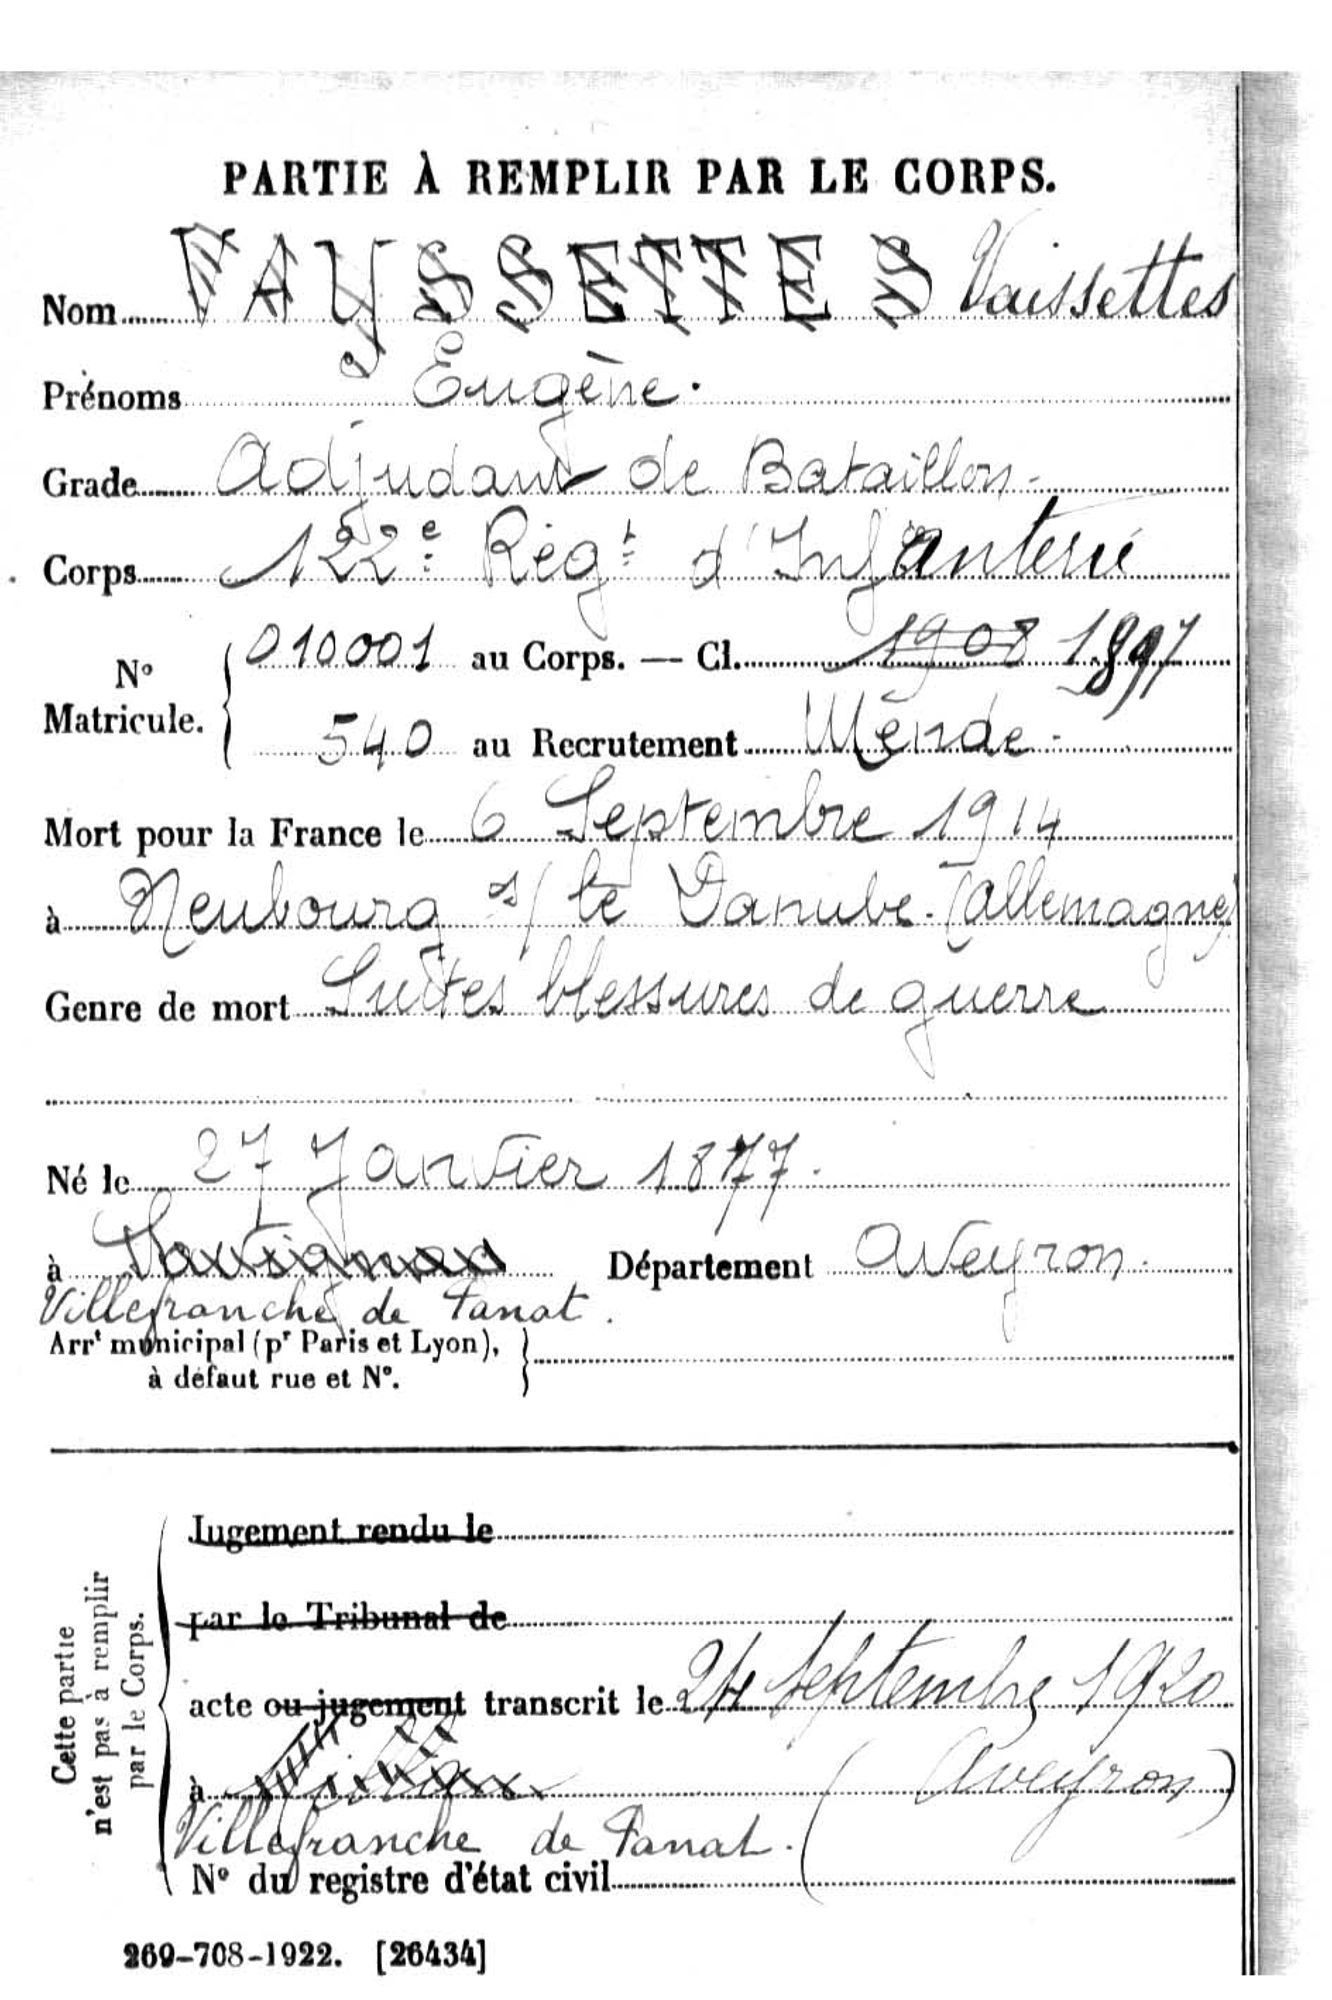 PARTIE À REMPLIR PAR LE CORPS.
Nom VAYSSETTES Vaissettes
Prénoms Eugène.
Grade Adjudant de Bataillon
Corps 122e Régt d'Infanterie
No Matricule. 010001 au Corps. — Cl. 1908 1897
540 au Recrutement Mende
Mort pour la France le 6 Septembre 1914
à Neubourg s/ le Danube. (Allemagne)
Genre de mort Suites blessures de guerre
Né le 27 Janvier 1877.
à Savignac Département Aveyron.
Villefranche de Panat.
Arrt municipal (pr Paris et Lyon),
à défaut rue et No.
Cette partie
n'est pas à remplir
par le Corps.
Jugement rendu le
par le Tribunal de
acte ou jugement transcrit le 24 septembre 1920
à (Aveyron)
Villefranche de Panat.
No du registre d'état civil
269-708-1922. [26434]